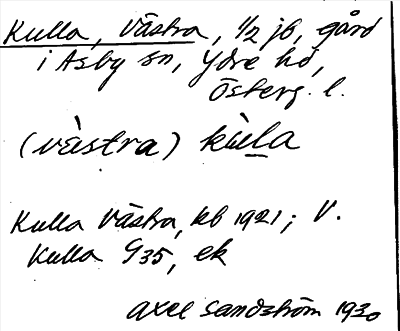 Kulla, Västra, 1/2 jb, gård
i Asby sn, Ydre hd,
Österg. l.
(vàstra) kùla
Kulla Västra, kb 1921; V.
Kulla G35, ek
Axel Sandström 1930